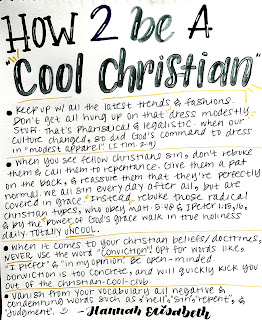 HOW 2 be A
"Cool Christian"
• Keep up w/ all the latest trends & fashions.
Don't get all hung up on that dress modestly
stuff. That's pharisaical & legalistic. When our
culture changed, so did God's command to dress
in "modest apparel". (1 Tim. 2:9)
• When you see fellow Christians sin, don't rebuke
them & call them to repentance. Give them a pat
on the back, & reassure them that they're perfectly
normal. We all sin every day after all, but are
covered in grace. Instead, rebuke those radical
Christian types, who obey Matt. 5:48 & 1 Peter 1:15,16,
& by the power of God's grace walk in true holiness
daily. Totally UNCOOL.
• When it comes to your Christian beliefs/doctrines,
NEVER use the word "conviction". Opt for words like,
"I prefer" & "in my opinion". Be open-minded.
Conviction is too concrete, and will quickly kick you
out of the Christian-cool-club.
• Vanish from your vocabulary all negative &
condemning words such as, "hell", "sin", "repent", &
"judgment". ☺ - Hannah Elisabeth